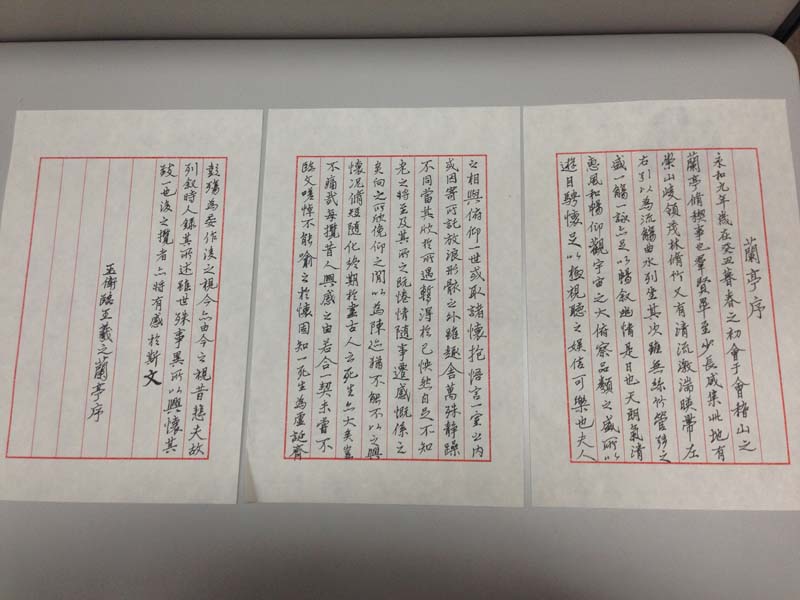 蘭亭序
永和九年歲在癸丑暮春之初會于會稽山之
蘭亭脩稧事也羣賢畢至少長咸集此地有
崇山峻領茂林脩竹又有清流激湍暎帶左
右引以為流觴曲水列坐其次雖無絲竹管弦之
盛一觴一詠亦足以暢叙幽情是日也天朗氣清
惠風和暢仰觀宇宙之大俯察品類之盛所以
遊目騁懷足以極視聽之娛信可樂也夫人
之相與俯仰一世或取諸懷抱悟言一室之內
或因寄所託放浪形骸之外雖趣舍萬殊靜躁
不同當其欣於所遇暫得於己怏然自足不知
老之將至及其所之既惓情隨事遷感慨係之
矣向之所欣俛仰之閒以為陳迹猶不能不以之興
懷況脩短隨化終期於盡古人云死生亦大矣豈
不痛哉每攬昔人興感之由若合一契未嘗不
臨文嗟悼不能喻之於懷固知一死生為虛誕齊
彭殤為妄作後之視今亦由今之視昔悲夫故
列叙時人錄其所述雖世殊事異所以興懷其
致一也後之攬者亦將有感於斯文
王衛臨王羲之蘭亭序